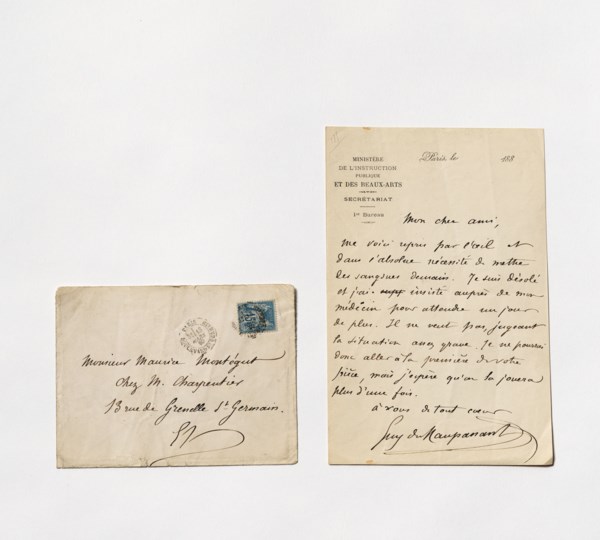 Monsieur Maurice Montégut
Chez M. Charpentier
13 rue de Grenelle St Germain.
MINISTÈRE
DE L'INSTRUCTION
PUBLIQUE
ET DES BEAUX-ARTS
SECRÉTARIAT
1er Bureau
Paris le 188
Mon cher ami,
me voici repris par l'œil et
dans l'absolue nécessité de mettre
les sangsues demain. Je suis désolé
et j'ai insisté auprès de mon
médecin pour attendre un jour
de plus. Il ne veut pas, jugeant
la situation assez grave. Je ne pourrai
donc aller à la première de votre
pièce, mais j'espère qu'on la jouera
plus d'une fois.
à vous de tout cœur
Guy de Maupassant